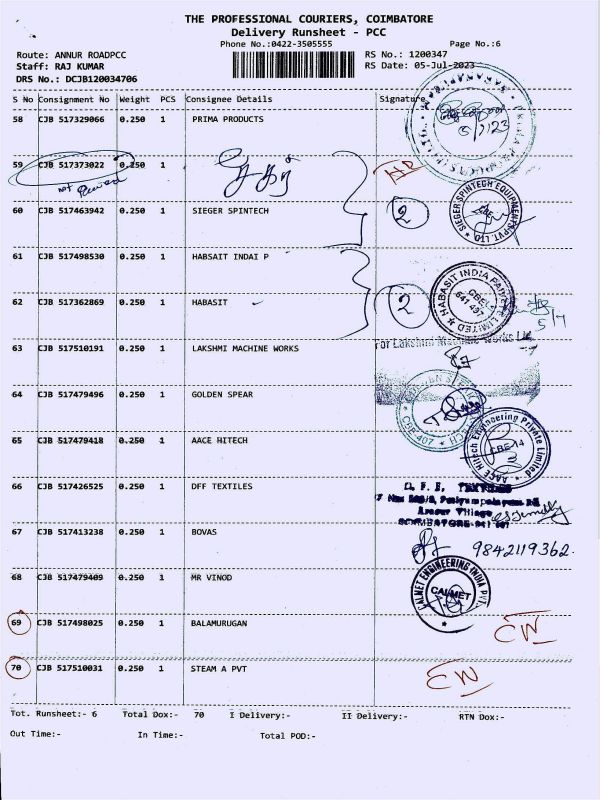 THE PROFESSIONAL COURIERS, COIMBATORE
Delivery Runsheet - PCC
Phone No.:0422-3505555 Page No.:6
Route: ANNUR ROADPCC RS No.: 1200347
Staff: RAJ KUMAR RS Date: 05-Jul-2023
DRS No.: DCJB120034706
S No Consignment No Weight PCS Consignee Details Signature
58 CJB 517329066 0.250 1 PRIMA PRODUCTS
5/7/23
59 CJB 517373022 0.250 1
not
60 CJB 517463942 0.250 1 SIEGER SPINTECH 2
SIEGER SPINTECH EQUIPMENTS PVT. LTD CBE
61 CJB 517498530 0.250 1 HABSAIT INDAI P
62 CJB 517362869 0.250 1 HABASIT 2
HABASIT INDIA PRIVATE LIMITED CBE 641 407
5/7
For Lakshmi Machine Works Ltd
63 CJB 517510191 0.250 1 LAKSHMI MACHINE WORKS
64 CJB 517479496 0.250 1 GOLDEN SPEAR
CBE 407
65 CJB 517479418 0.250 1 AACE HITECH
AACE Hitech Engineering Private Limited CBE-14
66 CJB 517426525 0.250 1 DFF TEXTILES
Arasur Village
COIMBATORE-641 407
67 CJB 517413238 0.250 1 BOVAS 9842119362.
68 CJB 517479409 0.250 1 MR VINOD
CALMET ENGINEERING INDIA PVT. CALMET
69 CJB 517498025 0.250 1 BALAMURUGAN CW
70 CJB 517510031 0.250 1 STEAM A PVT CW
Tot. Runsheet:- 6 Total Dox:- 70 I Delivery:- II Delivery:- RTN Dox:-
Out Time:- In Time:- Total POD:-